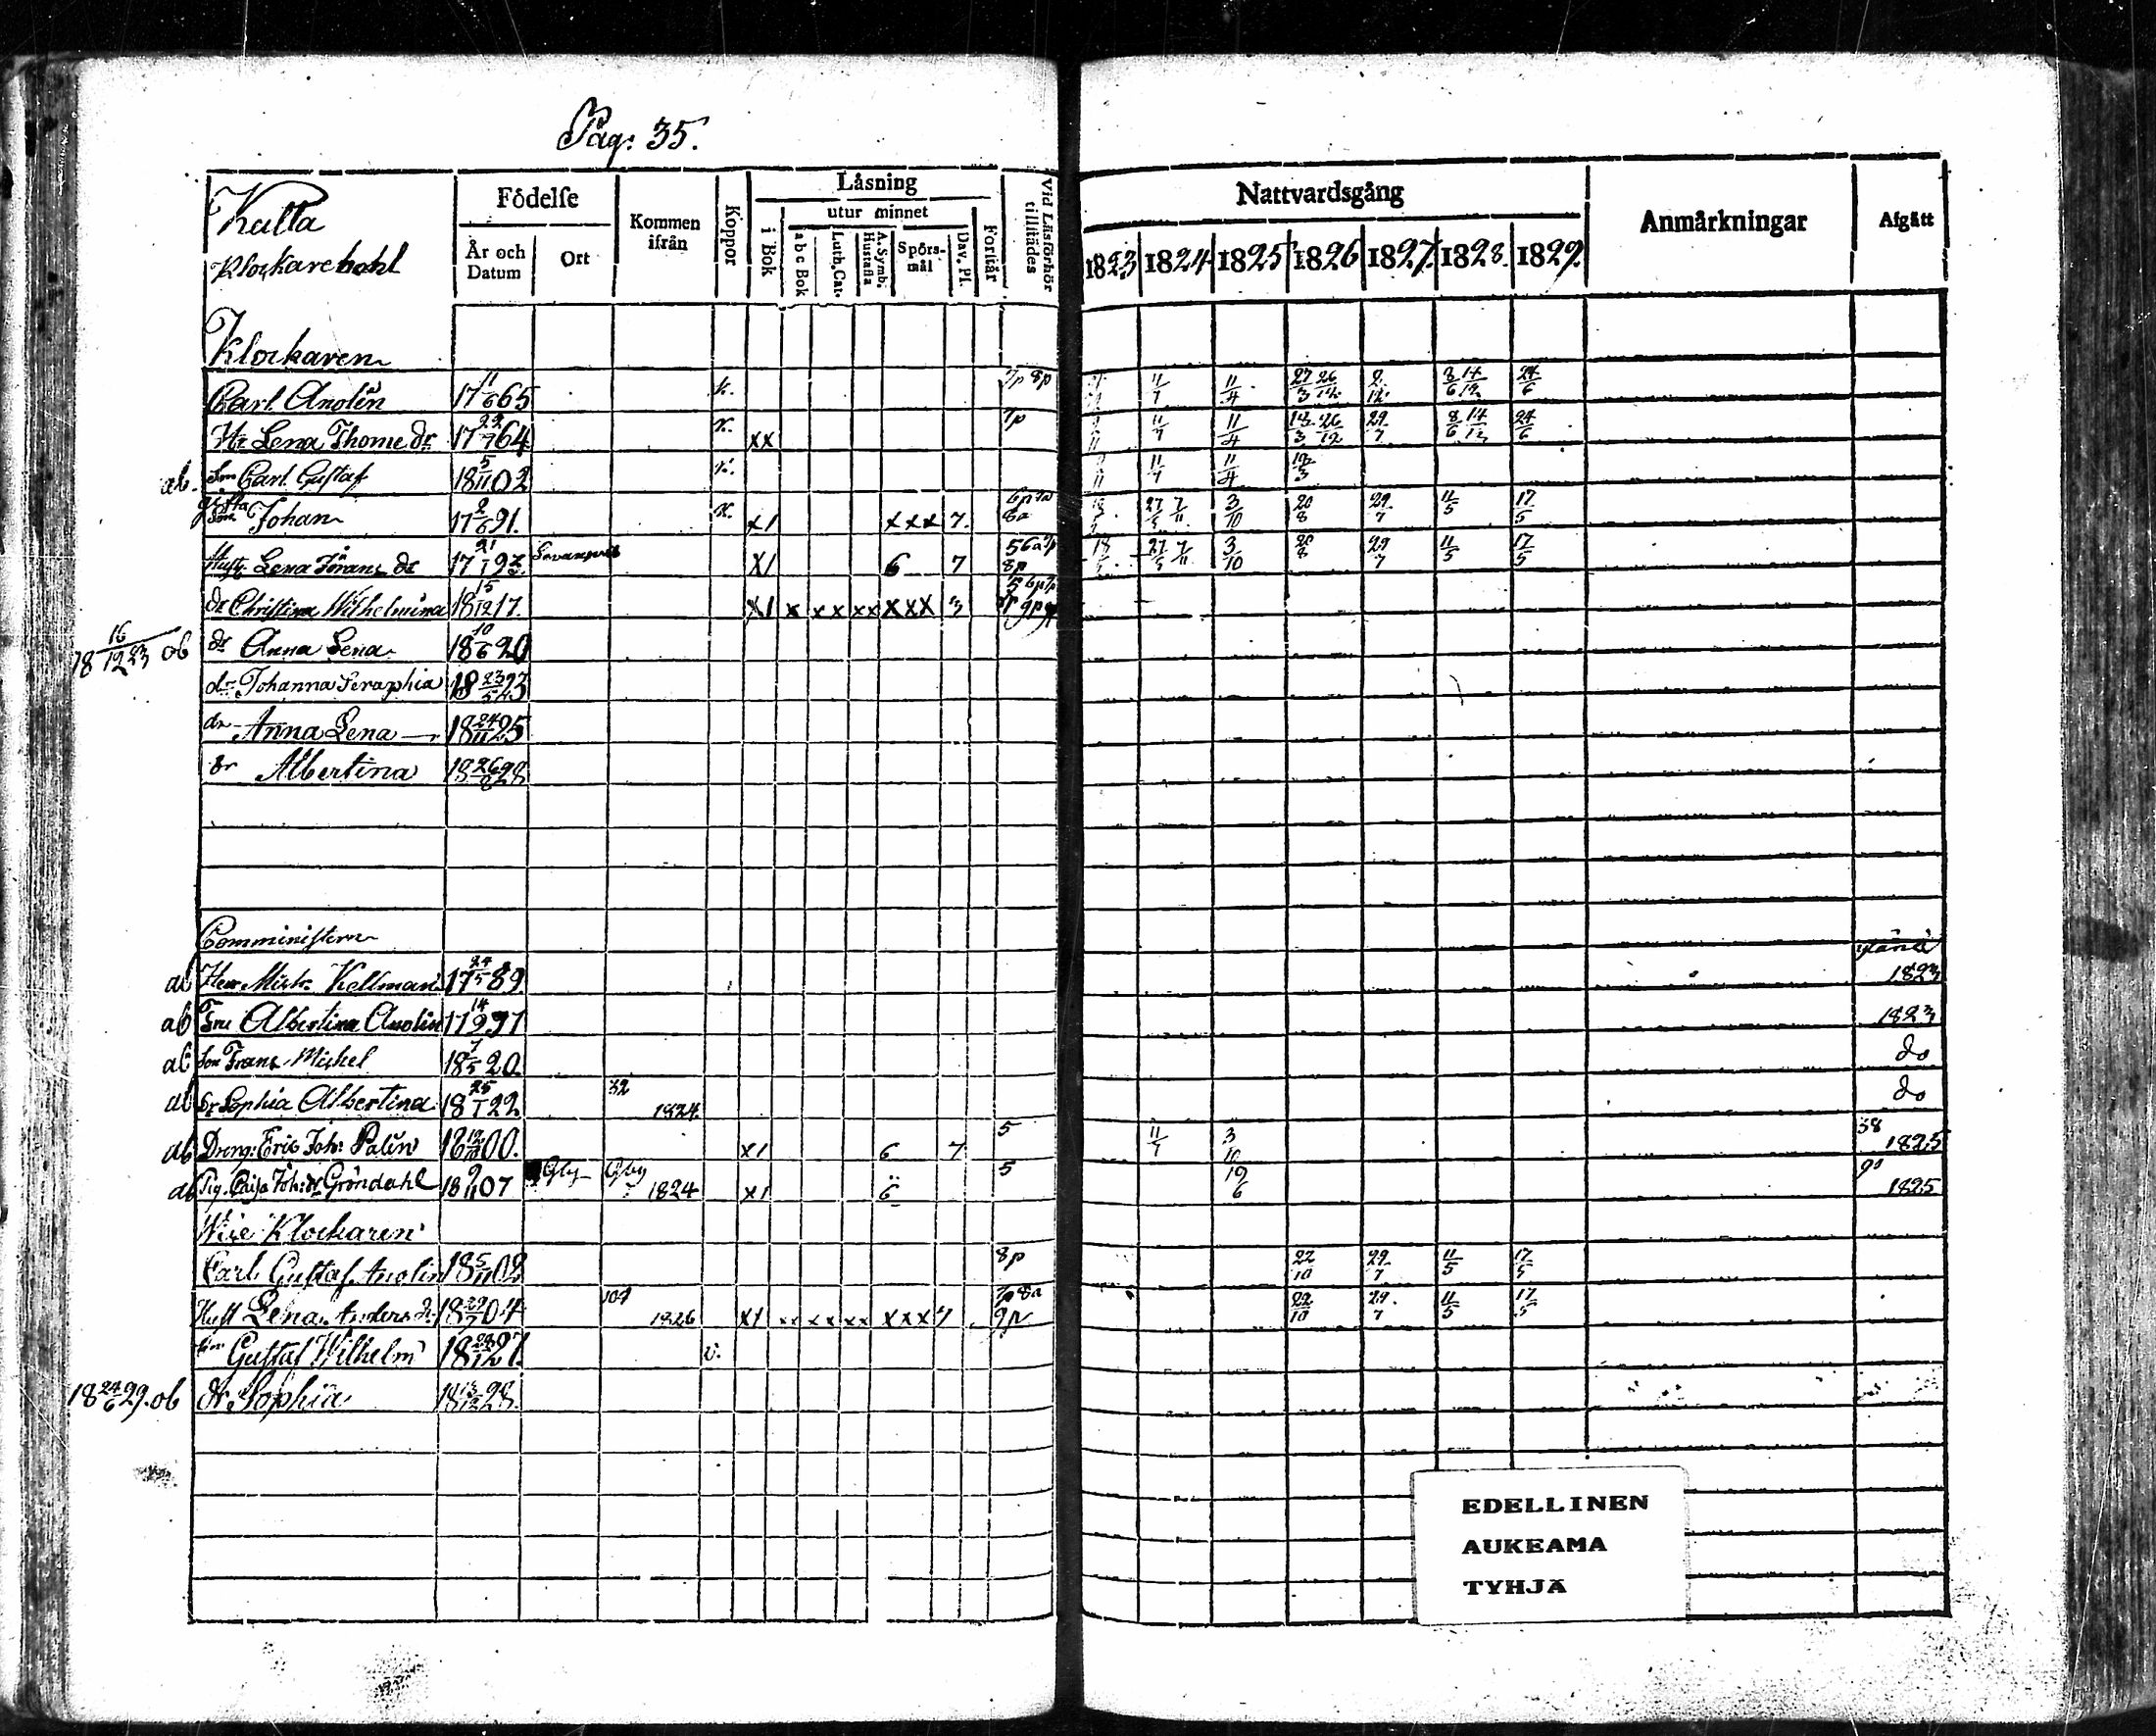 Pag: 35.
Kulla
Klockarebohl
Födelse
År och Datum
Ort
Kommen ifrån
Koppor
Läsning
i Bok
utur minnet
a b c Bok
Luth. Cat.
A. Symb. Hustafla
Spörsmål
Dav. Ps.
Förstår
Vid Läsförhör tillstädes
Nattvardsgång
1823 1824 1825 1826 1827. 1828. 1829.
Anmärkningar
Afgått
Klockaren
Carl Anolin 17 11/6 65 k. 7p 8p 11/7 11/4 27/3 26/12 2/12 8/6 14/12 24/6
Hr Lena Thome dr 17 22/7 64 k. xx 7p 11/7 11/4 12/3 26/12 29/7 8/6 14/12 24/6
ab. Son Carl Gustaf 18 5/11 02 k. 11/7 11/4 12/3
Son Johan 17 2/6 91. k. x1 xxx 7. 8a 27/5 7/11 3/10 20/8 29/7 11/5 17/5
Hust. Lena Jörans dr 17 21/1 93. x1 6 7 8p 27/5 7/11 3/10 20/8 29/7 11/5 17/5
dr Christina Wilhelmina 18 15/12 17. x1 x xx xx xxx 3
18 16/12 23 ob dr Anna Lena 18 10/6 20
dr Johanna Seraphia 18 23/5 23
dr Anna Lena 18 24/11 25
dr Albertina 18 26/8 28
Comministern
ab Herr Mich. Kellman 17 24/5 89 1823
ab Fru Albertina Anolin 17 14/9 97 1823
ab Son Frans Michel 18 7/5 20. do
ab dr Sophia Albertina 18 25/1 22 32 1824 do
ab Dreng: Eric Joh: Palin 18 00. x1 6 7 5 11/7 3/10 38 1825
ab Pig. Caisa Joh: dr Gröndahl 18 2/11 07 1824 x1 6 5 19/6 1825
Wice Klockaren
Carl Gustaf Anolin 18 5/11 02 8p 22/10 29/7 11/5 17/5
Hust Lena Anders dr 18 04 1826 x1 xx xx xx xxx 7 7p 8a 9p 22/10 29/7 11/5 17/5
Son Gustaf Wilhelm 18 28/1 27. v.
18 24/6 29. ob dr Sophia 18 13/12 28.
EDELLINEN
AUKEAMA
TYHJÄ